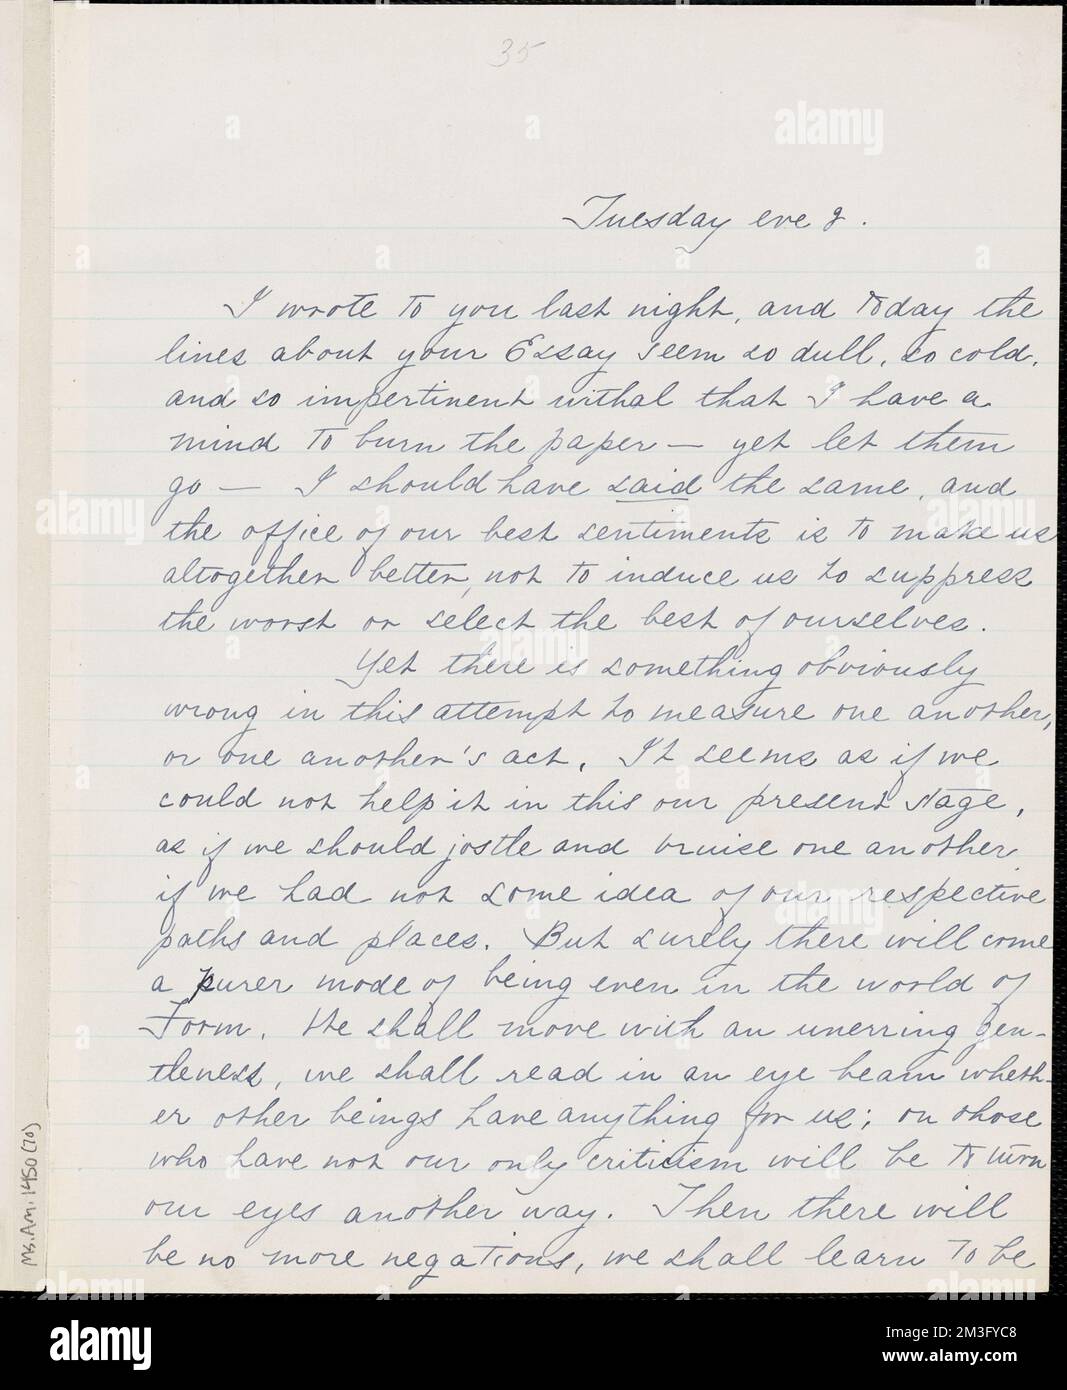 35
Tuesday eve g.
I wrote to you last night, and today the
lines about your Essay seem so dull, so cold,
and so impertinent withal that I have a
mind to burn the paper — yet let them
go — I should have said the same, and
the office of our best sentiments is to make us
altogether better, not to induce us to suppress
the worst or select the best of ourselves.
Yet there is something obviously
wrong in this attempt to measure one another,
or one another's act. It seems as if we
could not help it in this our present stage,
as if we should jostle and bruise one another
if we had not some idea of our respective
paths and places. But surely there will come
a purer mode of being even in the world of
Form. We shall move with an unerring gen-
tleness, we shall read in an eye beam wheth-
er other beings have anything for us; on those
who have not our only criticism will be to turn
our eyes another way. Then there will
be no more negations, we shall learn to be
Ms.Am.1450(70)
alamy
Image ID: 2M3FYC8
www.alamy.com